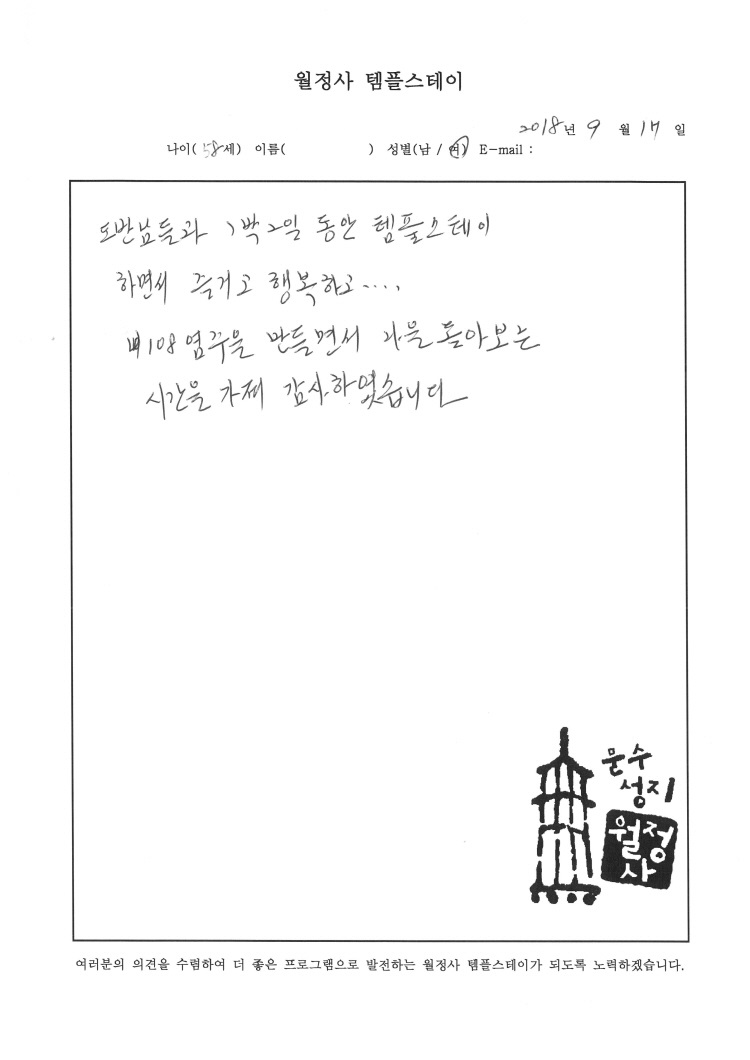 월정사 템플스테이
2018년 9 월 17 일
나이( 58세) 이름( ) 성별(남 / 여) E-mail :
도반님들과 1박2일 동안 템플스테이
하면서 즐거고 행복하고....
108염주을 만들면서 나을 돌아보는
시간을 가져 감사하였습니다
문수
성지
월정
사
여러분의 의견을 수렴하여 더 좋은 프로그램으로 발전하는 월정사 템플스테이가 되도록 노력하겠습니다.